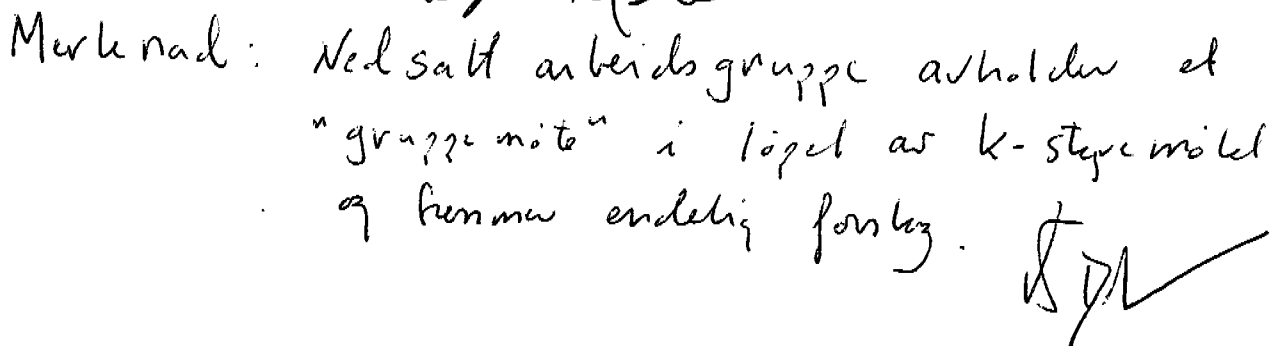 Merknad: Nedsatt arbeidsgruppe avholder et
"gruppemöte" i löpet av k-styremötet
og fremmer endelig forslag.